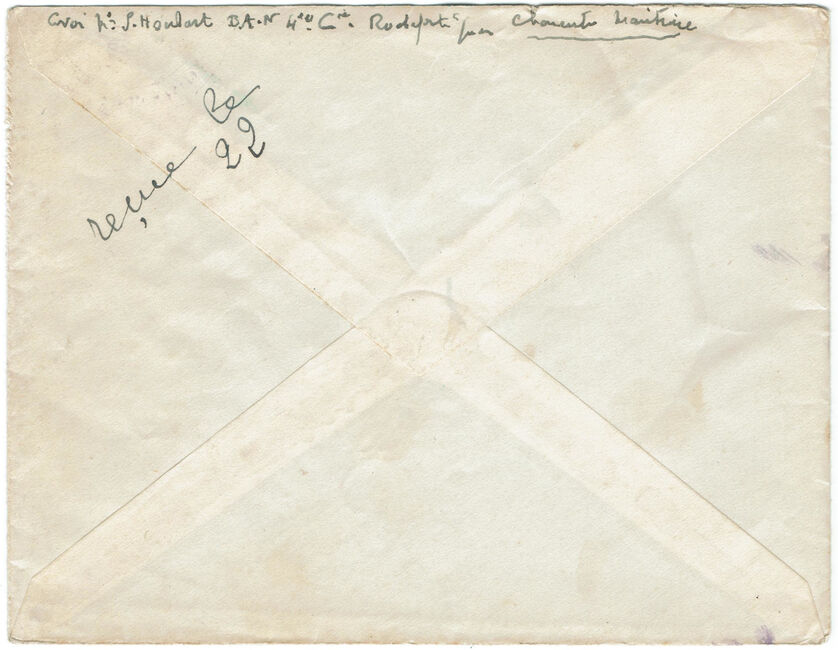 Envoi p. S. Houdart B.A.N 4e Cie Rochefort par Charente Maritime
reçue le
22